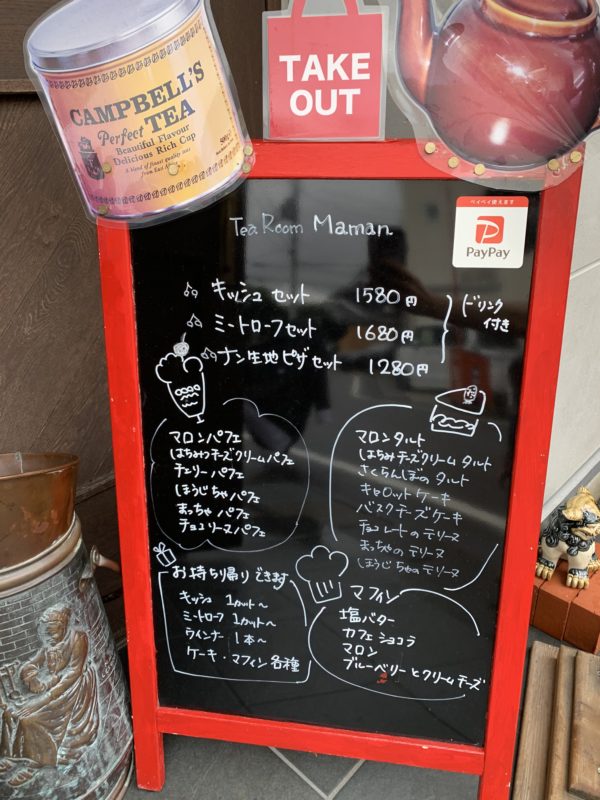 CAMPBELL'S
Perfect TEA
Beautiful Flavour
Delicious Rich Cup
A blend of finest quality teas
from East Africa
TAKE
OUT
ペイペイ使えます
PayPay
Tea Room Maman
キッシュ セット 1580円
ミートローフセット 1680円
ナン生地ピザセット 1280円
ドリンク
付き
マロンパフェ
はちみつチーズクリームパフェ
チェリーパフェ
ほうじちゃパフェ
まっちゃパフェ
チョコリーヌパフェ
マロンタルト
はちみつチーズクリームタルト
さくらんぼのタルト
キャロットケーキ
バスクチーズケーキ
チョコレートのテリーヌ
まっちゃのテリーヌ
ほうじちゃのテリーヌ
お持ち帰りできます
キッシュ 1カット〜
ミートローフ 1カット〜
ウインナー 1本〜
ケーキ・マフィン各種
マフィン
塩バター
カフェショコラ
マロン
ブルーベリーとクリームチーズ